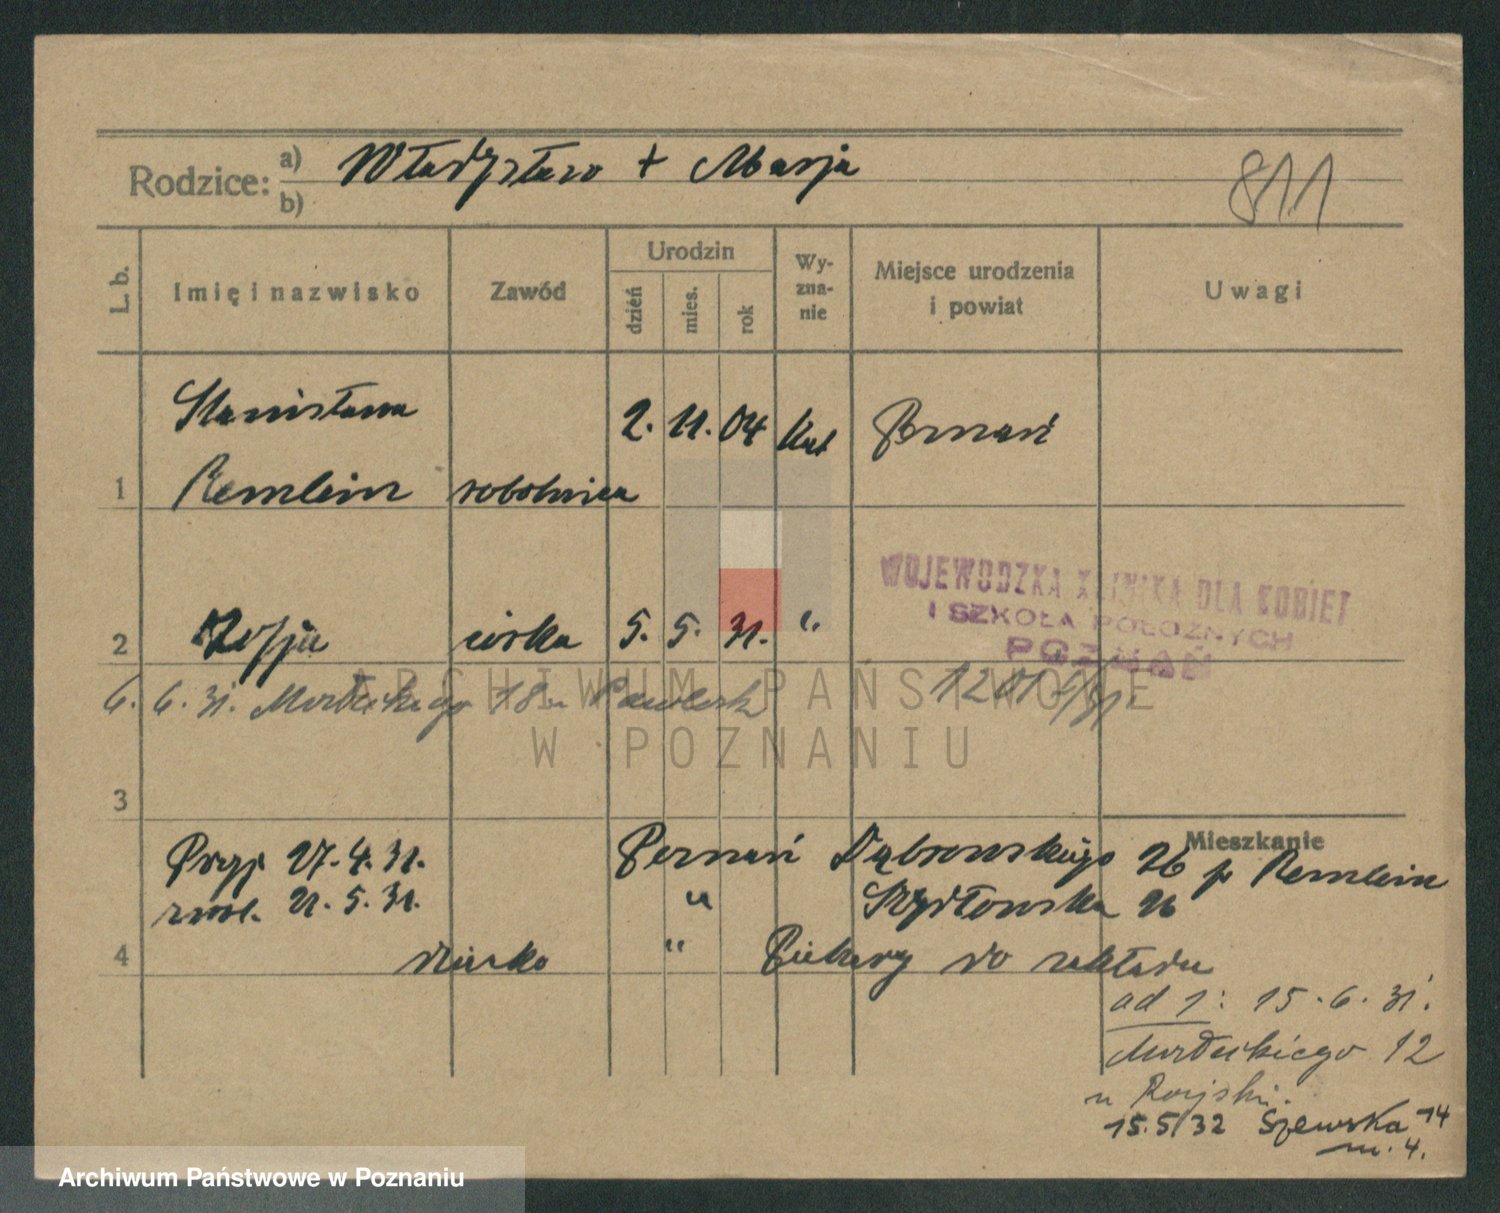 Rodzice: a) Władysław + Marja
b)
811
L. b.
Imię i nazwisko
Zawód
Urodzin
dzień
mies.
rok
Wy-
zna-
nie
Miejsce urodzenia
i powiat
Uwagi
Stanisława 2. 11. 04 kat Poznań
1 Remlein robotnica
WOJEWODZKA KLINIKA DLA KOBIET
I SZKOŁA POŁOŻNYCH
POZNAŃ
2 Zofja córka 5. 5. 31. "
6. 6. 31. 18 u
ARCHIWUM PAŃSTWOWE
W POZNANIU
3
Mieszkanie
Przyj 27. 4. 31. Poznań Dąbrowskiego 26 p Remlein
21. 5. 31. " 26
4 dziecko " Piekary do zakładu
ad 1: 15. 6. 31.
12
u
15.5/32 Szewska 14
m. 4.
Archiwum Państwowe w Poznaniu